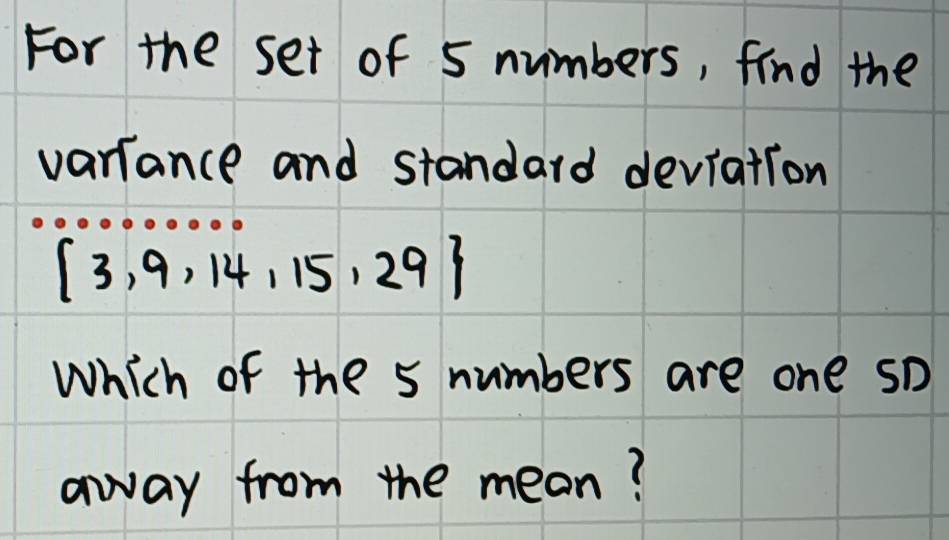 For the set of 5 numbers, find the
variance and standard deviation
{3,9,14,15,29}
Which of the 5 numbers are one SD
away from the mean?